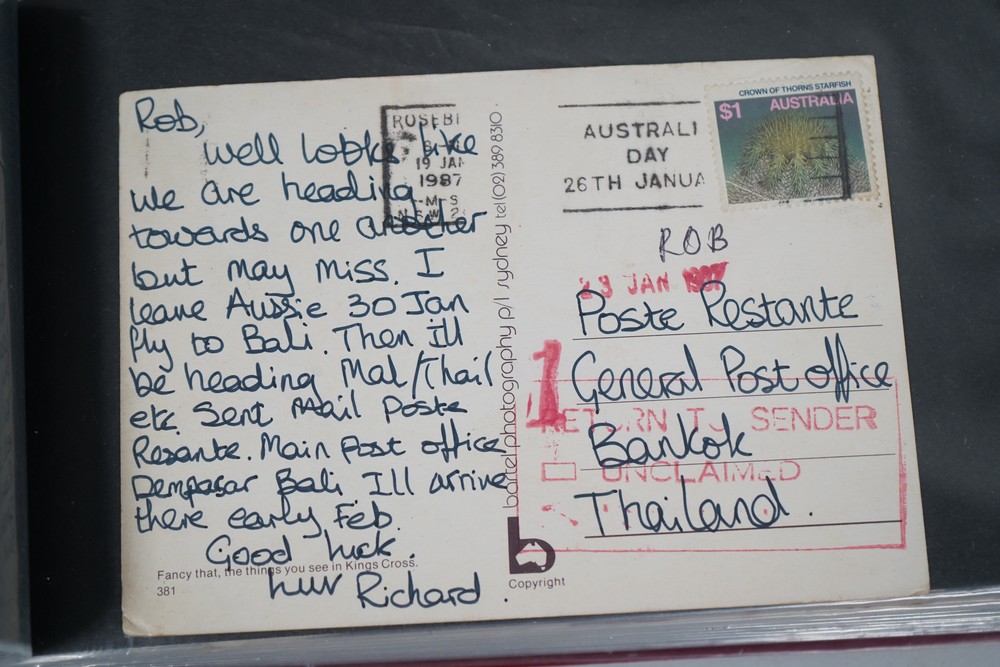 Rob,
well looks like
we are heading
towards one another
but may miss. I
leave Aussie 30 Jan
fly to Bali. Then ill
be heading Mal/Thail
etc. Sent Mail Poste
Resante. Main post office
Dempasar Bali. Ill arrive
there early Feb.
Good luck.
luv Richard.
Fancy that, the things you see in Kings Cross.
381
ROSEBE
19 JAN
1987
N.S.W. 2
bartel photography p/l sydney tel (02) 389 8310
b
Copyright
AUSTRALI
DAY
26TH JANUA
CROWN OF THORNS STARFISH
$1 AUSTRALIA
ROB
JAN 1987
Poste Restante
1
General Post office
RETURN TO SENDER
Bankok
UNCLAIMED
Thailand.